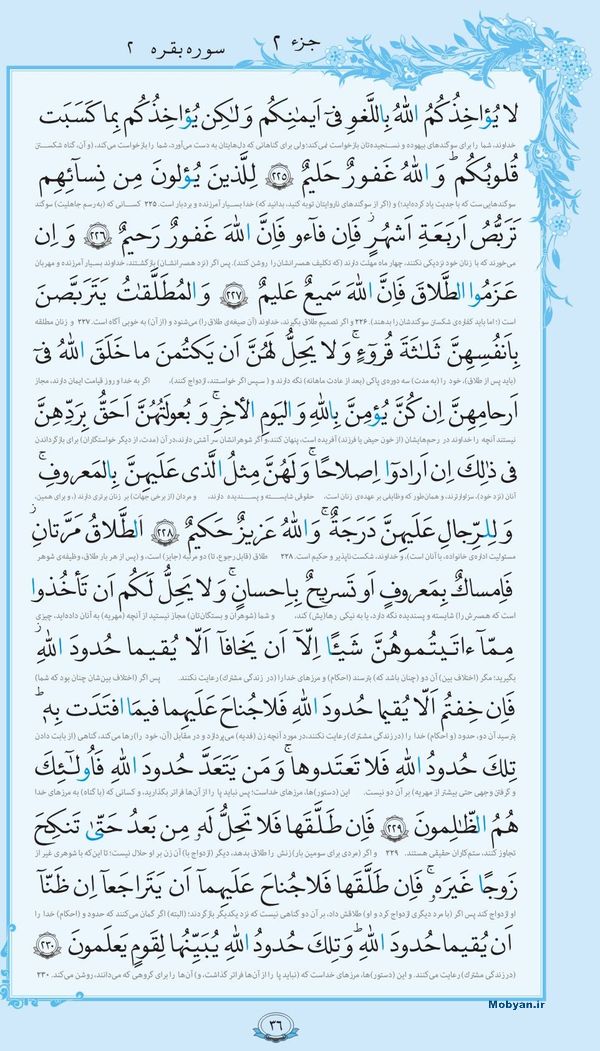 جزء ۲
سوره بقره ۲
لا يُؤاخِذُكُمُ اللهُ بِاللَّغوِ فى اَيمٰنِكُم وَلٰكِن يُؤاخِذُكُم بِما كَسَبَت
خداوند، شما را برای سوگندهای بیهوده و نسنجیده‌تان بازخواست نمی‌کند؛ ولی برای گناهانی که دل‌هایتان به دست می‌آورد، شما را بازخواست می‌کند، (و آن، گناه شکستن
قُلوبُكُم وَ اللهُ غَفورٌ حَليمٌ ﴿۲۲۵﴾ لِلَّذينَ يُؤلونَ مِن نِسآئِهِم
سوگندهایی ست که با جدیت یاد کرده‌اید)؛ و (اگر از سوگندهای ناروایتان توبه کنید، بدانید که) خدا بسیار آمرزنده و بردبار است. ۲۲۵ کسانی که (به رسم جاهلیت) سوگند
تَرَبُّصُ اَرَبعَةِ اَشهُرٍ فَاِن فآءو فَاِنَّ اللهَ غَفورٌ رَحيمٌ ﴿۲۲۶﴾ وَ اِن
می‌خورند که با زنان خود نزدیکی نکنند، چهار ماه مهلت دارند (که تکلیف همسرانشان را روشن کنند). پس اگر (نزد همسرانشان) بازگشتند، خداوند بسیار آمرزنده و مهربان
عَزَمُوا الطَّلاقَ فَاِنَّ اللهَ سَميعٌ عَليمٌ ﴿۲۲۷﴾ وَالمُطَلَّقٰتُ يَتَرَبَّصنَ
است (؛ اما باید کفاره‌ی شکستن سوگندشان را بدهند). ۲۲۶ و اگر تصمیم طلاق بگیرند، خداوند (آن صیغه‌ی طلاق را) می‌شنود و (از آن) به خوبی آگاه است. ۲۲۷ و زنان مطلقه
بِاَنفُسِهِنَّ ثَلٰثَةَ قُروٓءٍ وَ لا يَحِلُّ لَهُنَّ اَن يَكتُمنَ ما خَلَقَ اللهُ فى
(باید پس از طلاق)، خود را (به مدت) سه دوره‌ی پاکی (بعد از عادت ماهانه) نگه دارند و (سپس اگر خواستند، ازدواج کنند)، اگر به خدا و روز قیامت ایمان دارند، مجاز
اَرحامِهِنَّ اِن كُنَّ يُؤمِنَّ بِاللهِ وَ اليَومِ الأخِرِ وَ بُعولَتُهُنَّ اَحَقُّ بِرَدِّهِنَّ
نیستند آنچه را خداوند در رحم‌هایشان (از خون حیض یا فرزند) آفریده است، پنهان کنند، و اگر شوهرانشان سر آشتی دارند، در آن (مدت، از دیگر خواستگاران) برای بازگرداندن
فى ذٰلِكَ اِن اَرادوٓا اِصلاحًا وَ لَهُنَّ مِثلُ الَّذى عَلَيهِنَّ بِالمَعروفِ
آنان (نزد خود)، سزاوارترند، و همان‌طور که وظایفی بر عهده‌ی زنان است، حقوقی شایسته و پسندیده دارند، و مردان (از برخی جهات) بر زنان برتری دارند (، و برای همین،
وَ لِلرِّجالِ عَلَيهِنَّ دَرَجَةٌ وَ اللهُ عَزيزٌ حَكيمٌ ﴿۲۲۸﴾ اَلطَّلاقُ مَرَّتانِ
مسئولیت اداره‌ی خانواده، با آنان است)، و خداوند، شکست‌ناپذیر و حکیم است. ۲۲۸ طلاق (قابل رجوع، تا) دو مرتبه (جایز) است، و (پس از هر بار طلاق، وظیفه‌ی شوهر
فَاِمساكٌ بِمَعروفٍ اَو تَسريحٌ بِاِحسانٍ وَ لا يَحِلُّ لَكُم اَن تَأخُذوا
است که همسرش را) شایسته و پسندیده نگه دارد، یا به نیکی رها(یش) کند، و شما (شوهران و بستگان‌تان) مجاز نیستید از آنچه (مهریه) به آنان داده‌اید، چیزی
مِمّآ ءاتَيتُموهُنَّ شَيئًا اِلّآ اَن يَخافآ اَلّا يُقيما حُدودَ اللهِ
بگیرید؛ مگر (اختلاف بین) آن دو (چنان باشد که) بترسند (احکام) و مرزهای خدا را (در زندگی مشترک) رعایت نکنند. پس اگر (اختلاف بین‌شان چنان بود که شما)
فَاِن خِفتُم اَلّا يُقيما حُدودَ اللهِ فَلا جُناحَ عَلَيهِما فيمَا افتَدَت بِه
بترسید آن دو، حدود (و احکام) خدا را (در زندگی مشترک) رعایت نکنند، در مورد آنچه زن (فدیه) می‌پردازد و در مقابل (آن، خود را) رها می‌کند، گناهی (از بابت دادن
تِلكَ حُدودُ اللهِ فَلا تَعتَدوها وَ مَن يَتَعَدَّ حُدودَ اللهِ فَاُولٰٓئِكَ
و گرفتن وجهی حتی بیشتر از مهریه) بر آن دو نیست. این (دستور)ها، مرزهای خداست؛ پس نباید پا را از آن‌ها فراتر بگذارید، و کسانی که (با گناه) به مرزهای خدا
هُمُ الظّالِمونَ ﴿۲۲۹﴾ فَاِن طَلَّقَها فَلا تَحِلُّ لَه مِن بَعدُ حَتّىٰ تَنكِحَ
تجاوز کنند، ستم‌کاران حقیقی هستند. ۲۲۹ و اگر (مردی برای سومین بار) زنش را طلاق بدهد، دیگر (ازدواج با) آن زن بر او حلال نیست؛ تا این‌که با شوهری غیر از
زَوجًا غَيرَه فَاِن طَلَّقَها فَلا جُناحَ عَلَيهِمآ اَن يَتَراجَعآ اِن ظَنّآ
او ازدواج کند پس اگر (با مرد دیگری ازدواج کرد و او) طلاقش داد، بر آن دو گناهی نیست که نزد یکدیگر بازگردند؛ (البته) اگر گمان می‌کنند که حدود و (احکام) خدا را
اَن يُقيما حُدودَ اللهِ وَ تِلكَ حُدودُ اللهِ يُبَيِّنُها لِقَومٍ يَعلَمونَ ﴿۲۳۰﴾
(در زندگی مشترک) رعایت می‌کنند. و این (دستور)ها، مرزهای خداست که (نباید پا را از آن‌ها فراتر گذاشت، و) آن‌ها را برای گروهی که می‌دانند، روشن می‌کند. ۲۳۰
Mobyan.ir
۳۶